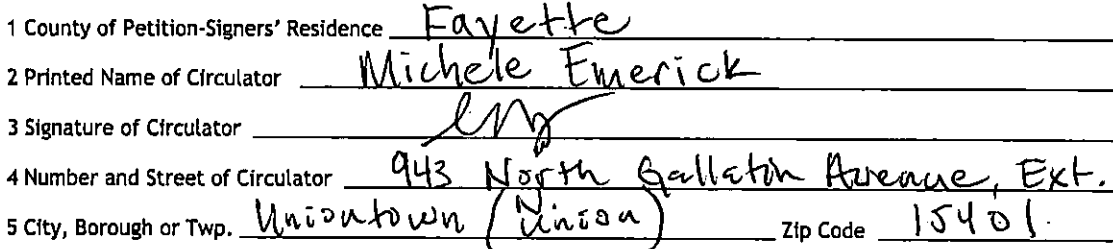 1 County of Petition-Signers' Residence Fayette
2 Printed Name of Circulator Michele Emerick
3 Signature of Circulator
4 Number and Street of Circulator 943 North Gallatin Avenue, Ext.
5 City, Borough or Twp. Uniontown (Union) Zip Code 15401